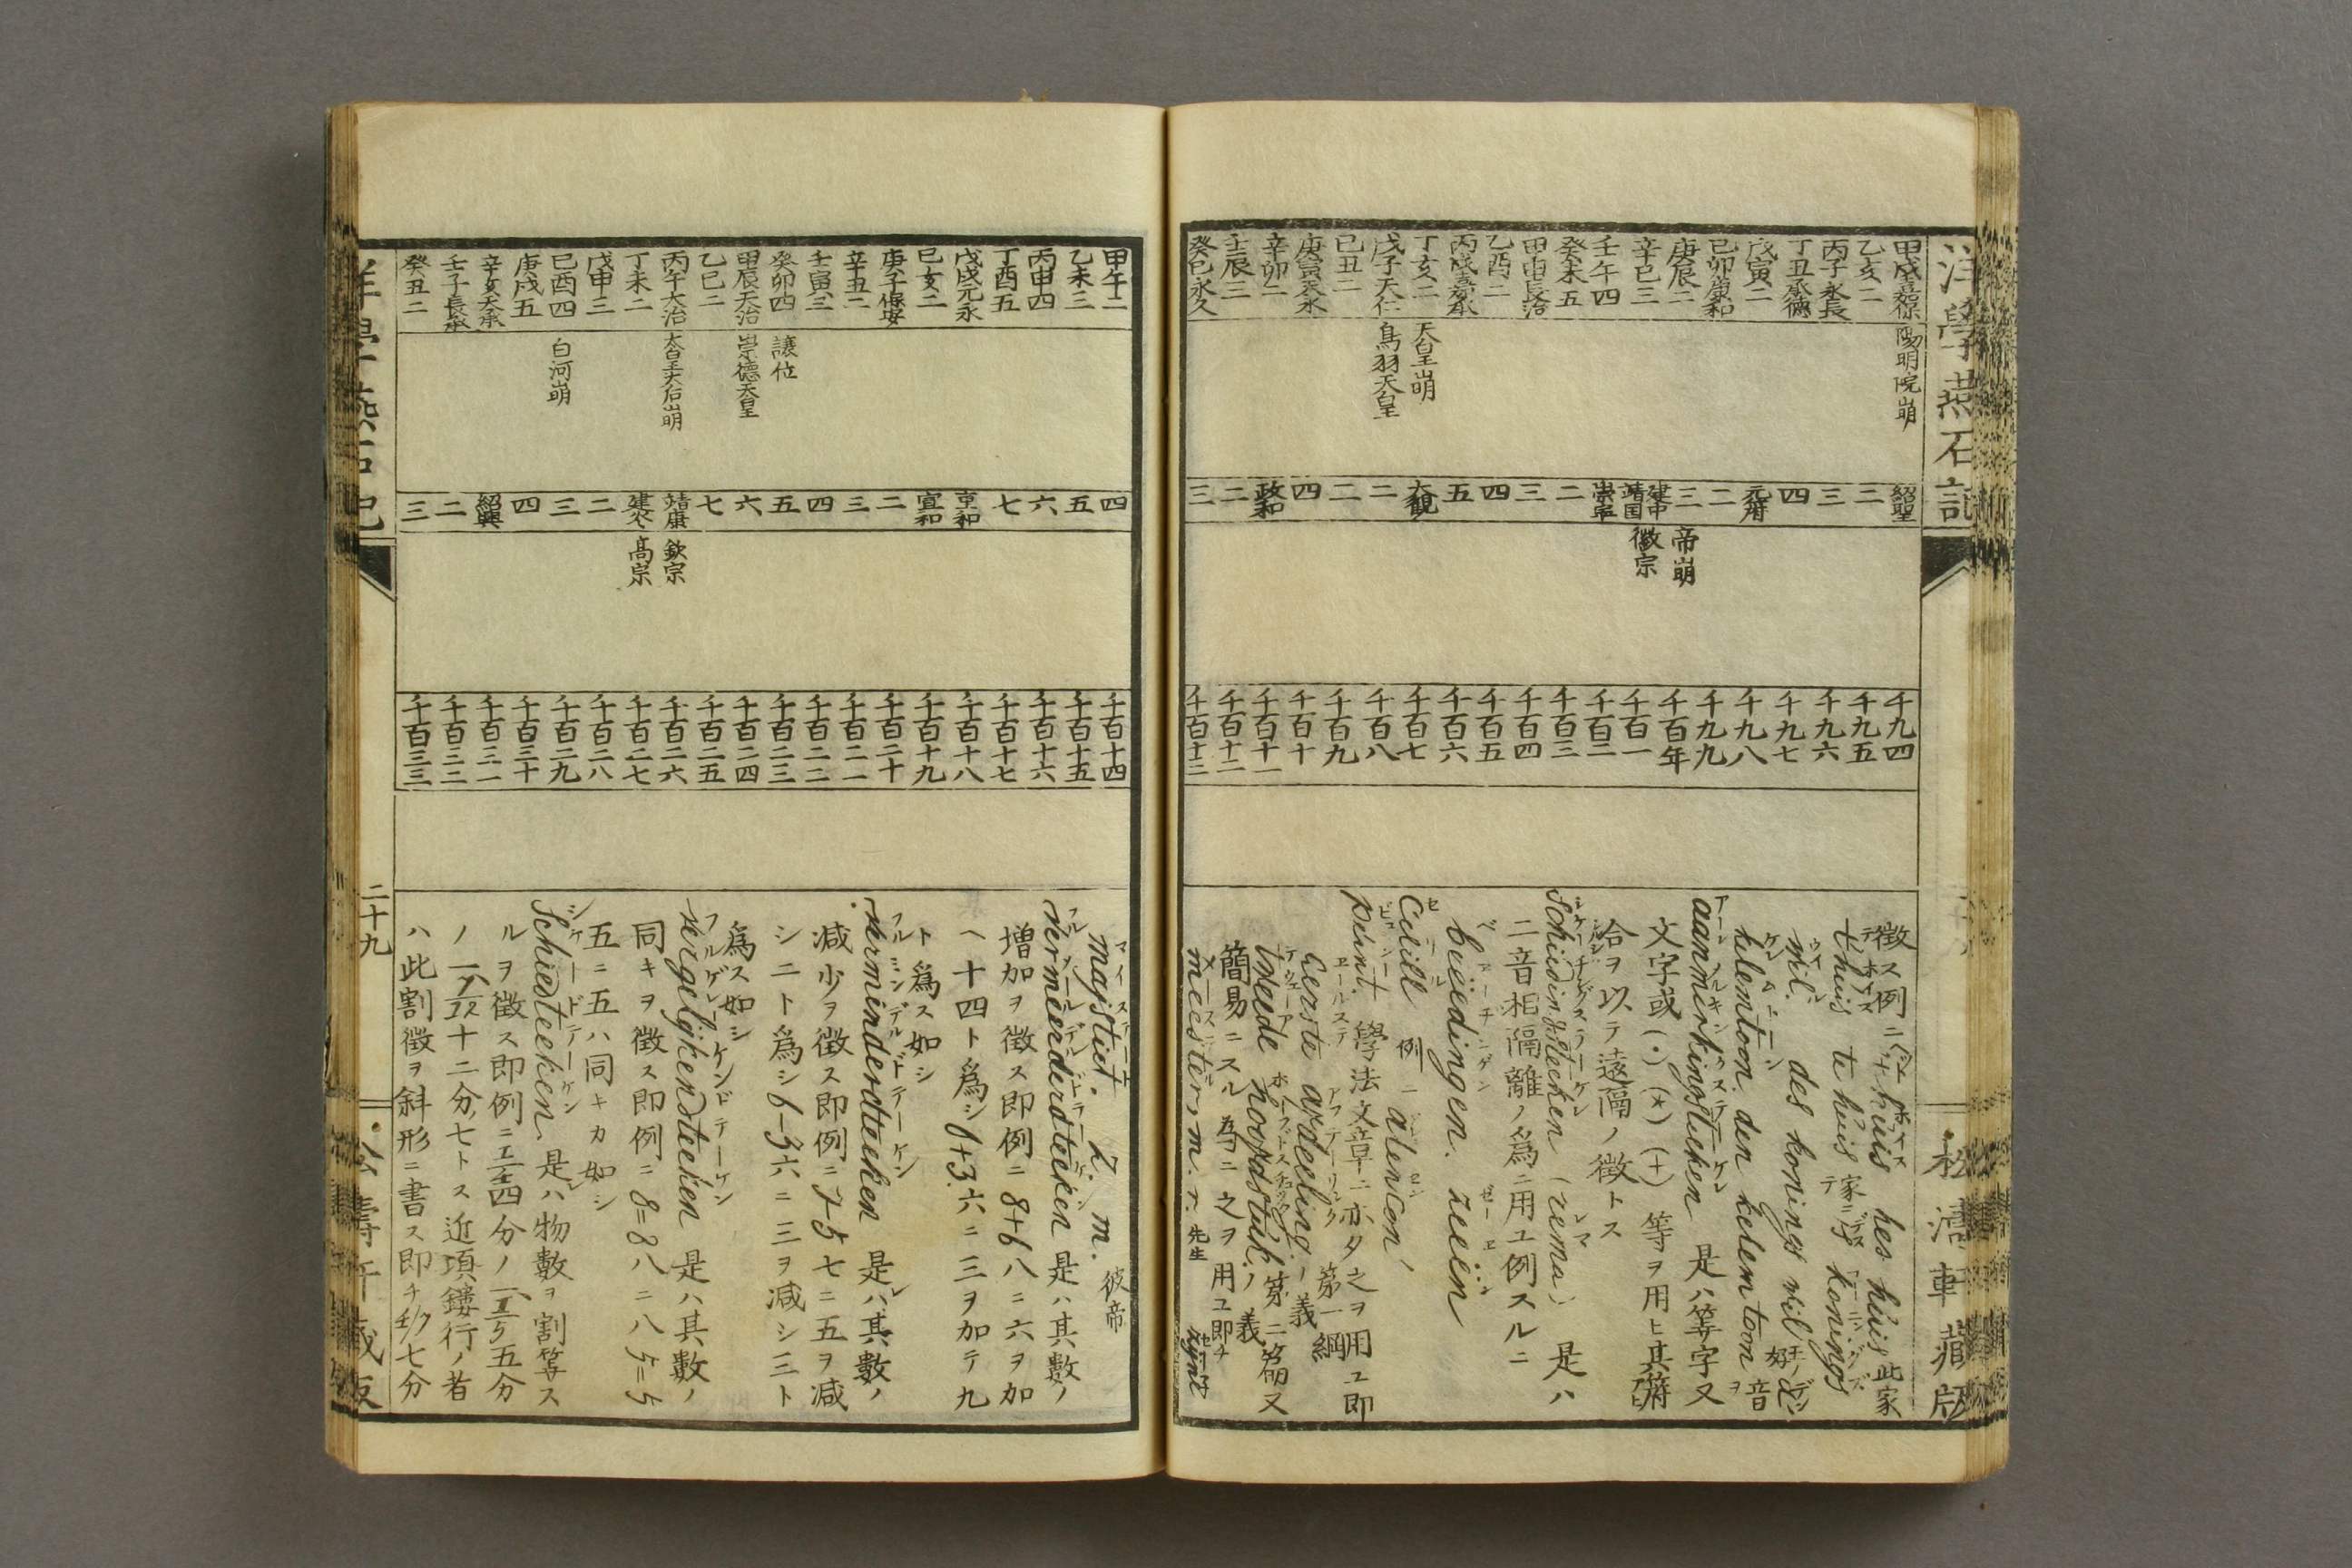 洋學燕石記
松濤軒蔵版
甲戌嘉保
乙亥二
丙子永長
丁丑承徳
戊寅二
己卯康和
庚辰二
辛巳三
壬午四
癸未五
甲申長治
乙酉二
丙戌嘉承
丁亥二
戊子天仁
己丑二
庚寅天永
辛卯二
壬辰三
癸巳永久
陽明院崩
天皇崩
鳥羽天皇
紹聖
二
三
四
元符
二
三
建中靖国
崇寧
二
三
四
五
大観
二
三
四
政和
二
三
帝崩
徽宗
千九四
千九五
千九六
千九七
千九八
千九九
千百年
千百一
千百二
千百三
千百四
千百五
千百六
千百七
千百八
千百九
千百十
千百十一
千百十二
千百十三
徴ス例ニ hes huis 此家
t'huis te huis 家ニ konings
wil. des konings wil 王ノ好
kelemtoon. den kelemtoon 音ヲ
aanmerkingsteeken 是ハ等字又
文字或(・)(*)(+)等ヲ用ヒ其符
合ヲ以テ遠隔ノ徴トス
(rema) 是ハ
二音相隔離ノ爲ニ用ユ例スルニ
beëedingen. zeeën
例ニ alencon
punt. 學法文章ニ亦タ之ヲ用ユ即
eerste afdeeling. 第一綱ノ義
tweede hoofdstuk. 第二篇ノ義又
簡易ニスル爲ニ之ヲ用ユ即チ
meester, m. r. 先生
甲午二
乙未三
丙申四
丁酉五
戊戌元永
己亥二
庚子保安
辛丑二
壬寅三
癸卯四
甲辰天治
乙巳二
丙午大治
丁未二
戊申三
己酉四
庚戌五
辛亥天承
壬子長承
癸丑二
讓位
崇德天皇
太皇大后崩
白河崩
四
五
六
七
重和
宣和
二
三
四
五
六
七
靖康
建炎
二
三
四
紹興
二
三
欽宗
高宗
千百十四
千百十五
千百十六
千百十七
千百十八
千百十九
千百二十
千百二一
千百二二
千百二三
千百二四
千百二五
千百二六
千百二七
千百二八
千百二九
千百三十
千百三一
千百三二
千百三三
majstiet. z. m. 彼帝
vermeerderdteeken 是ハ其數ノ
増加ヲ徴ス即例ニ 8+6 八ニ六ヲ加
ヘ十四ト爲シ 6+3. 六ニ三ヲ加テ九
ト爲ス如シ
verminderdteeken 是ハ其數ノ
減少ヲ徴ス即例ニ 7-5 七ニ五ヲ減
シ二ト爲シ 6-3 六ニ三ヲ減シ三ト
爲ス如シ
vergelijkendteeken 是ハ其數ノ
同キヲ徴ス即例ニ 8=8 八ニ八 5=5
五ニ五ハ同キカ如シ
schiedteeken 是ハ物數ヲ割等ス
ルヲ徴ス即例ニ四分ノ一五分
ノ一十二分七トス近項鏤行ノ者
ハ此割徴ヲ斜形ニ書ス即チ七分
洋學燕石記
二十九
松濤軒蔵版